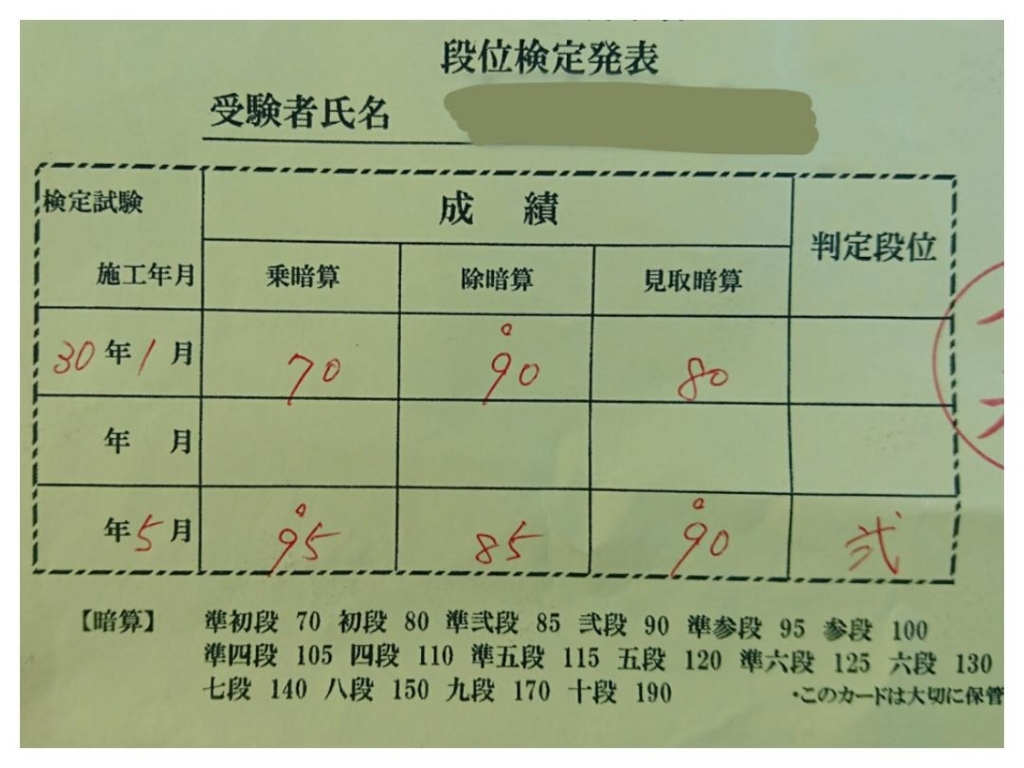 段位検定発表
受験者氏名
検定試験
施工年月
成績
判定段位
乗暗算 除暗算 見取暗算
30年1月 70 90 80
年 月
年5月 95 85 90 弐
【暗算】 準初段 70 初段 80 準弐段 85 弐段 90 準参段 95 参段 100
準四段 105 四段 110 準五段 115 五段 120 準六段 125 六段 130
七段 140 八段 150 九段 170 十段 190 ・このカードは大切に保管